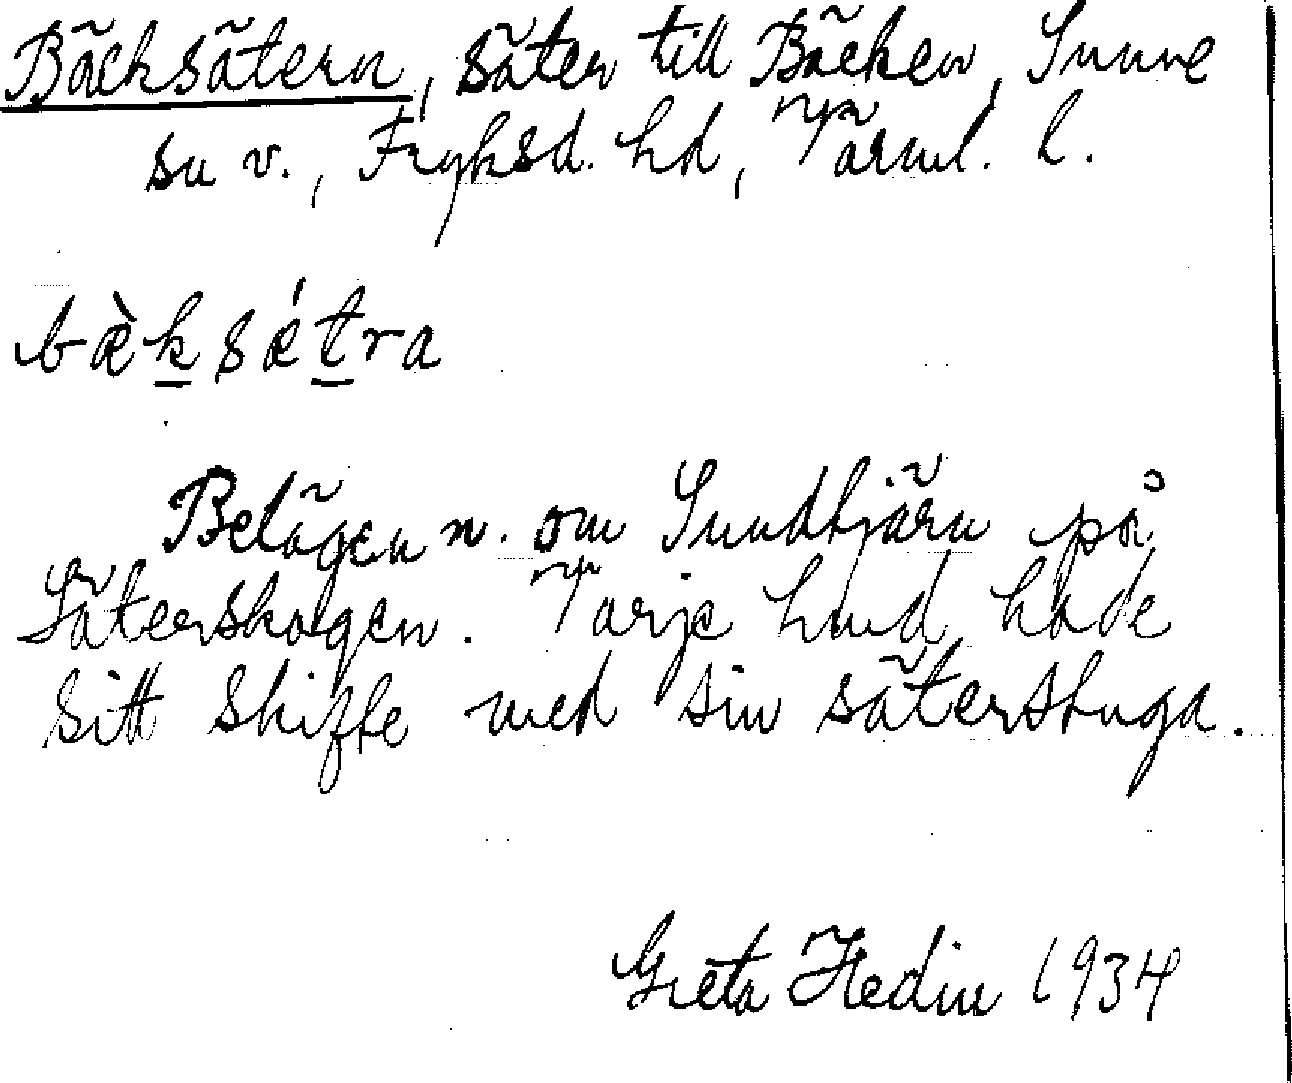 Bäcksätern, säter till Bäcken, Sunne
sn v., Fryksd. hd, Värml. l.
bæ̀k̲sǽt̲ra
Belägen n. om Sundtjärn på
Säterskogen. Varje hmd hade
sitt skifte med sin säterstuga.
Greta Hedin 1934